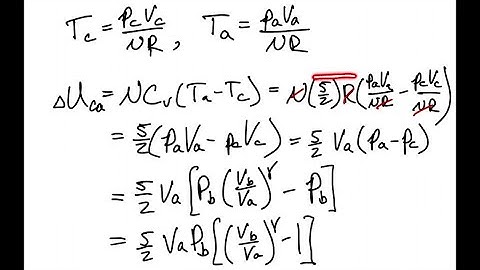 T_c = p_cV_c/NR, T_a = p_aV_a/NR
ΔU_ca = NC_v(T_a-T_c) = N(5/2)R(p_aV_a/NR - p_cV_c/NR)
= 5/2(p_aV_a - p_cV_c) = 5/2 V_a(p_a-p_c)
= 5/2 V_a[P_b(V_b/V_a)^γ - P_b]
= 5/2 V_aP_b[(V_b/V_a)^γ - 1]